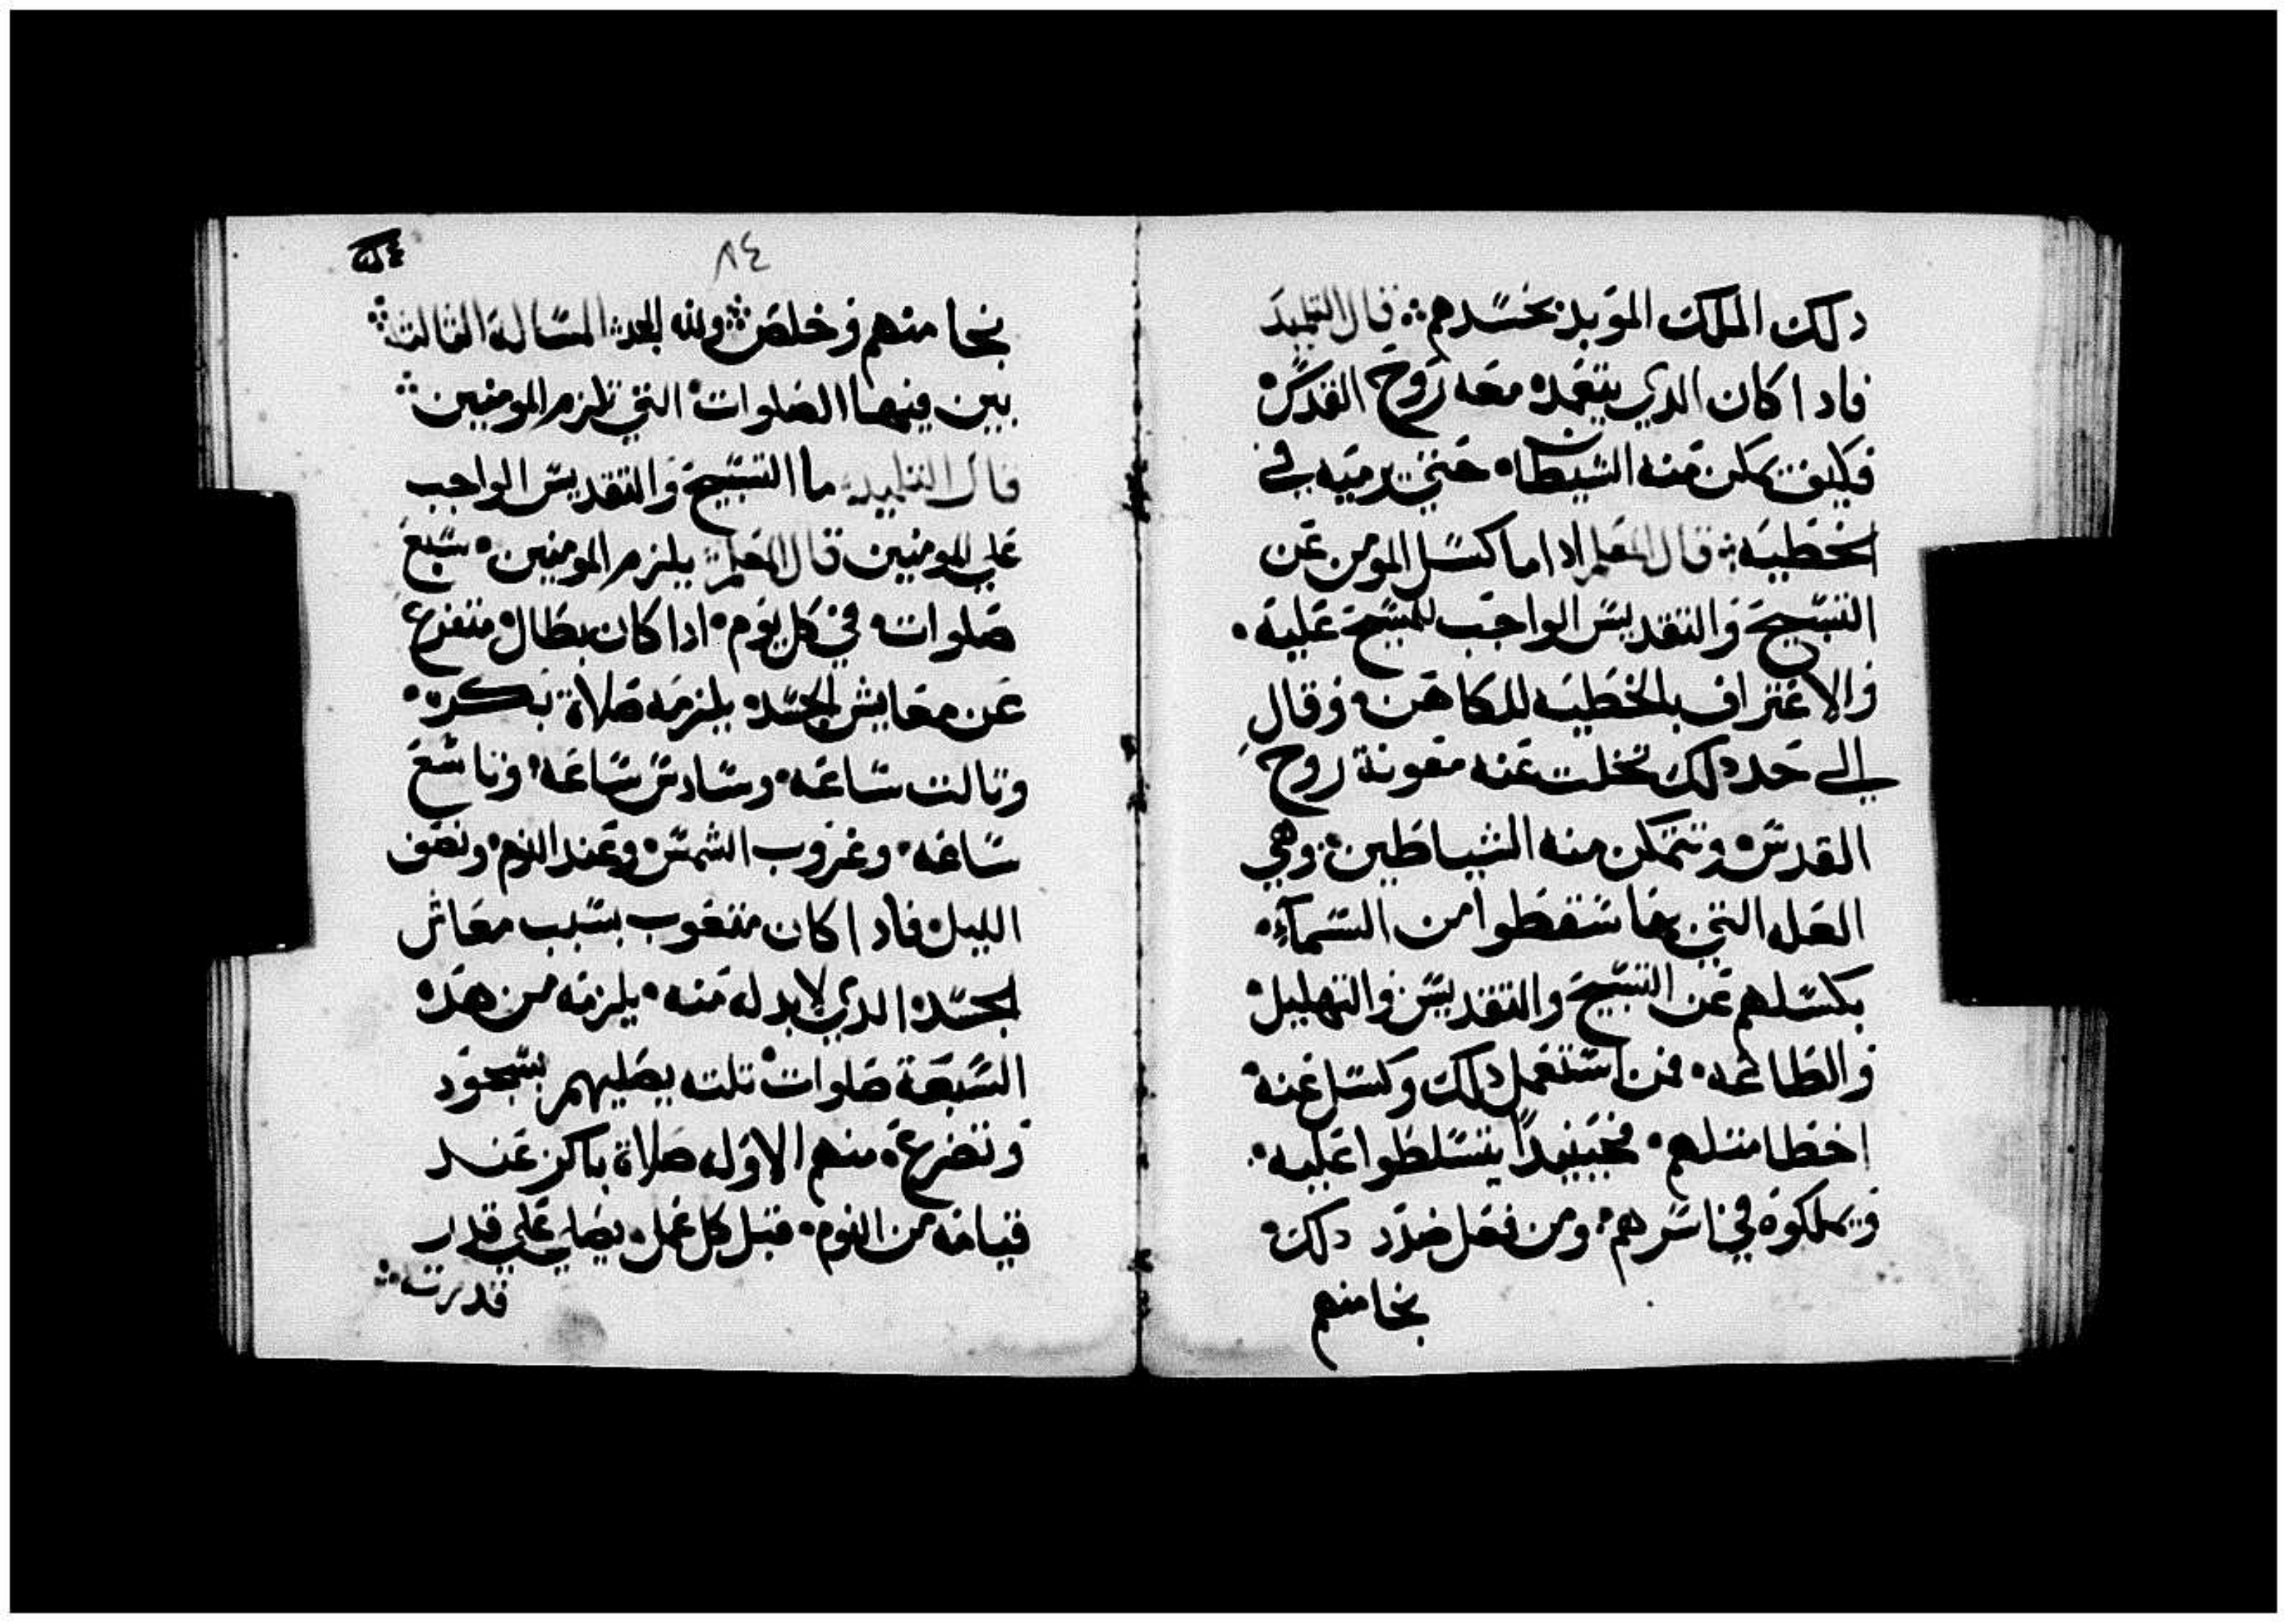 دلك الملك الموبد بحسدهم قال التلميد
فادا كان الدي يتعمد معه روح القدس
فكيف يمكن منه الشيطان حتي يرميه في
الخطيه قال المعلم ادا ما كسل المومن عن
التسبيح والتقديس الواجب للمسيح عليه
والاعتراف بالخطيه للكاهن وقال
الي حد دلك تخلت عنه معونة روح
القدس وتتمكن منه الشياطين وهي
العله التي بها سقطوا من السماء
بكسلهم عن التسبيح والتقديس والتهليل
والطاعه فمن استعمل دلك وكسل عنه
اخطا متلهم فحينيدا يتسلطوا عليه
ويملكوه في اسرهم ومن فعل ضدد دلك
نجا منهم
٨٤
نجا منهم وخلص ولله المجد المساله التالته
يبين فيها الصلوات التي تلزم المومنين
قال التلميد ما التسبيح والتقديس الواجب
علي المومنين قال المعلم يلزم المومنين سبع
صلوات في كل يوم ادا كان بطال متفرغ
عن معايش الجسد يلزمه صلاة بكره
وتالت ساعه وسادس ساعه وتاسع
ساعه وغروب الشمس وعند النوم ونصف
الليل فادا كان متعوب بسبب معاش
الجسد الدي لابد له منه يلزمه من هده
السبعة صلوات تلته يصليهم بسجود
وتضرع منهم الاوله صلاة باكر عند
قيامه من النوم قبل كل عمل يصلي علي قدر
قدرته